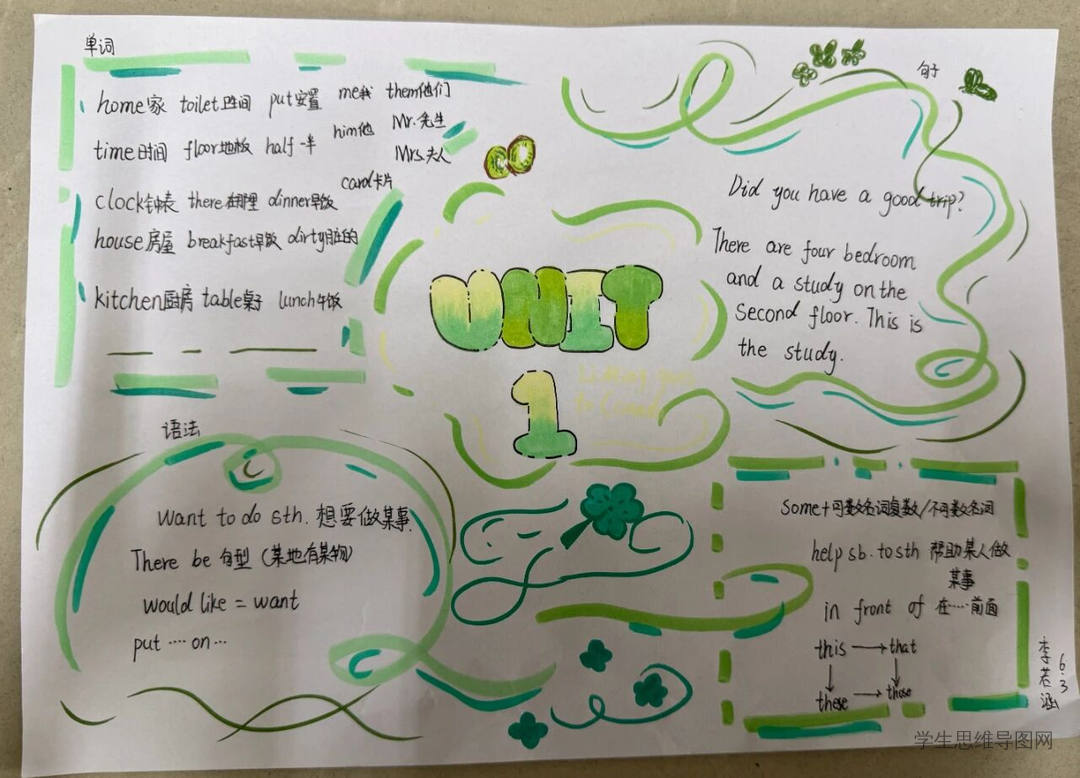 单词
home家 toilet卫生间 put安置 me我 them他们
time时间 floor地板 half一半 him他 Mr.先生
Mrs.夫人
clock钟表 there在那里 dinner早饭 card卡片
house房屋 breakfast早饭 dirty脏的
kitchen厨房 table桌子 lunch午饭
句子
Did you have a good trip?
There are four bedroom
and a study on the
second floor. This is
the study.
UNIT
1
语法
want to do sth. 想要做某事.
There be 句型 (某地有某物)
would like = want
put ···· on ···
some+可数名词复数/不可数名词
help sb. to sth 帮助某人做
某事
in front of 在····前面
this → that
↓ ↓
these → those
李若涵
6.3
学生思维导图网